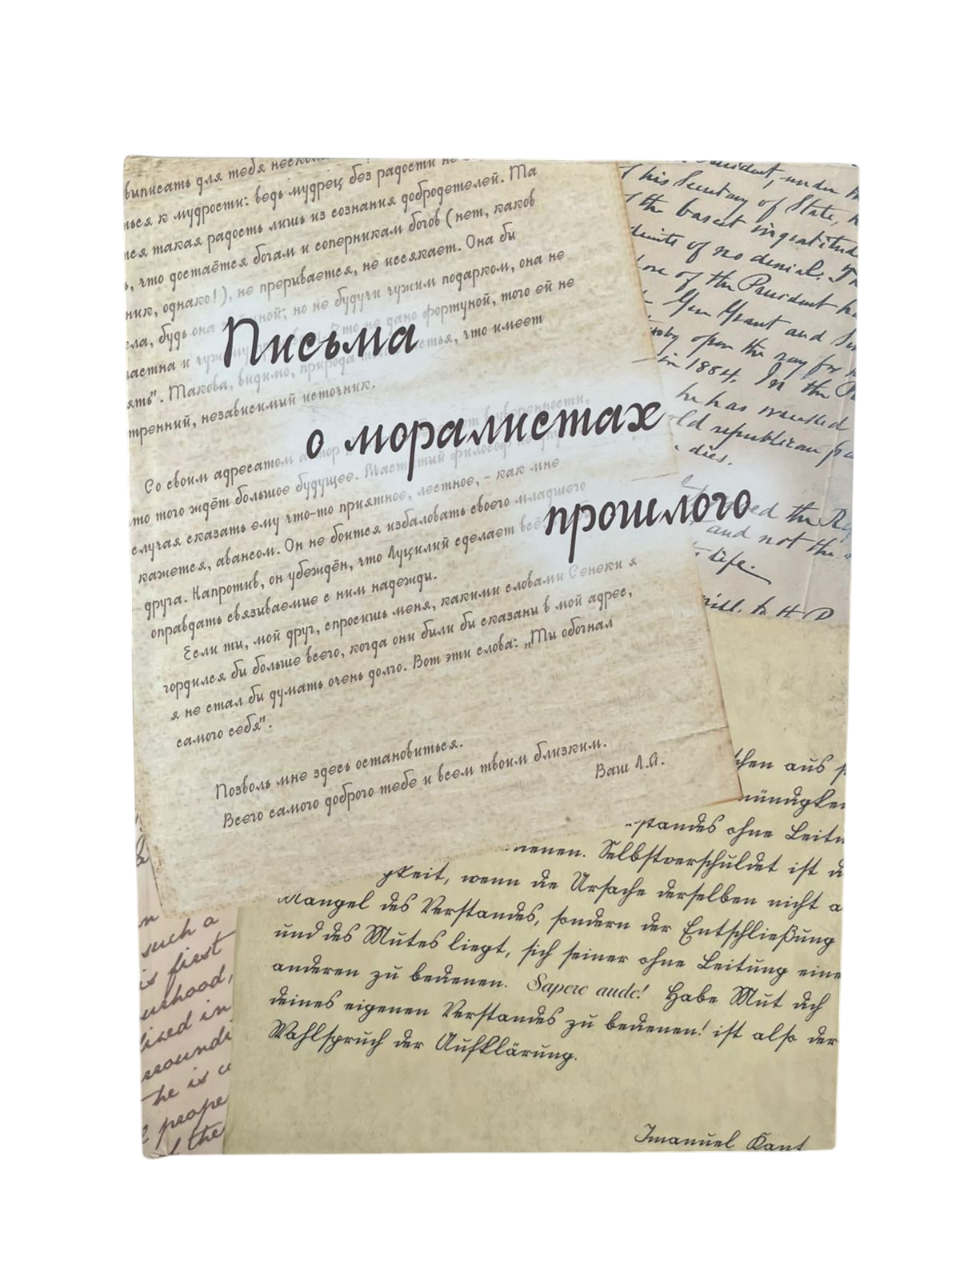 выписать для тебя
ться к мудрости: ведь мудрец без радости не
тся такая радость лишь из сознания добродетелей. Та
, что достаётся богам и соперникам богов (нет, каков
ник, однако!), не прерывается, не иссякает. Она бы
ла, будь она но не будучи чужим подарком, она не
частна и дано фортуной, того ей не
ять". Такова, видимо, природа что имеет
тренний, независимый источник.
Письма
о моралистах
прошлого
Со своим адресатом
то того ждёт большое будущее. философ
случая сказать ему что-то приятное, лестное, - как мне
кажется, авансом. Он не боится избаловать своего младшего
друга. Напротив, он убеждён, что Луцилий сделает всё
оправдать связываемые с ним надежды.
Если ты, мой друг, спросишь меня, какими словами Сенеки я
гордился бы больше всего, когда они были бы сказаны в мой адрес,
я не стал бы думать очень долго. Вот эти слова: „Ты обогнал
самого себя".
Позволь мне здесь остановиться.
Всего самого доброго тебе и всем твоим близким.
Ваш Л.А.
President, under
f his Secretary of State,
f the basest ingratitude
of no denial.
of the President
Gen Grant and
open the way for
in 1884. In the
he has
old republican
dies.
the
and not the
life.
chen aus
mündigkei
standes ohne Leitu
ienen. Selbstverschuldet ist d
gkeit, wenn die Ursache derselben nicht a
Mangel des Verstandes, sondern der Entschließung
und des Mutes liegt, sich seiner ohne Leitung eine
anderen zu bedienen. Sapere aude! Habe Mut dich
deines eigenen Verstandes zu bedienen! ist also der
Wahlspruch der Aufklärung.
Imanuel Kant
such a
is first
he is
people
the